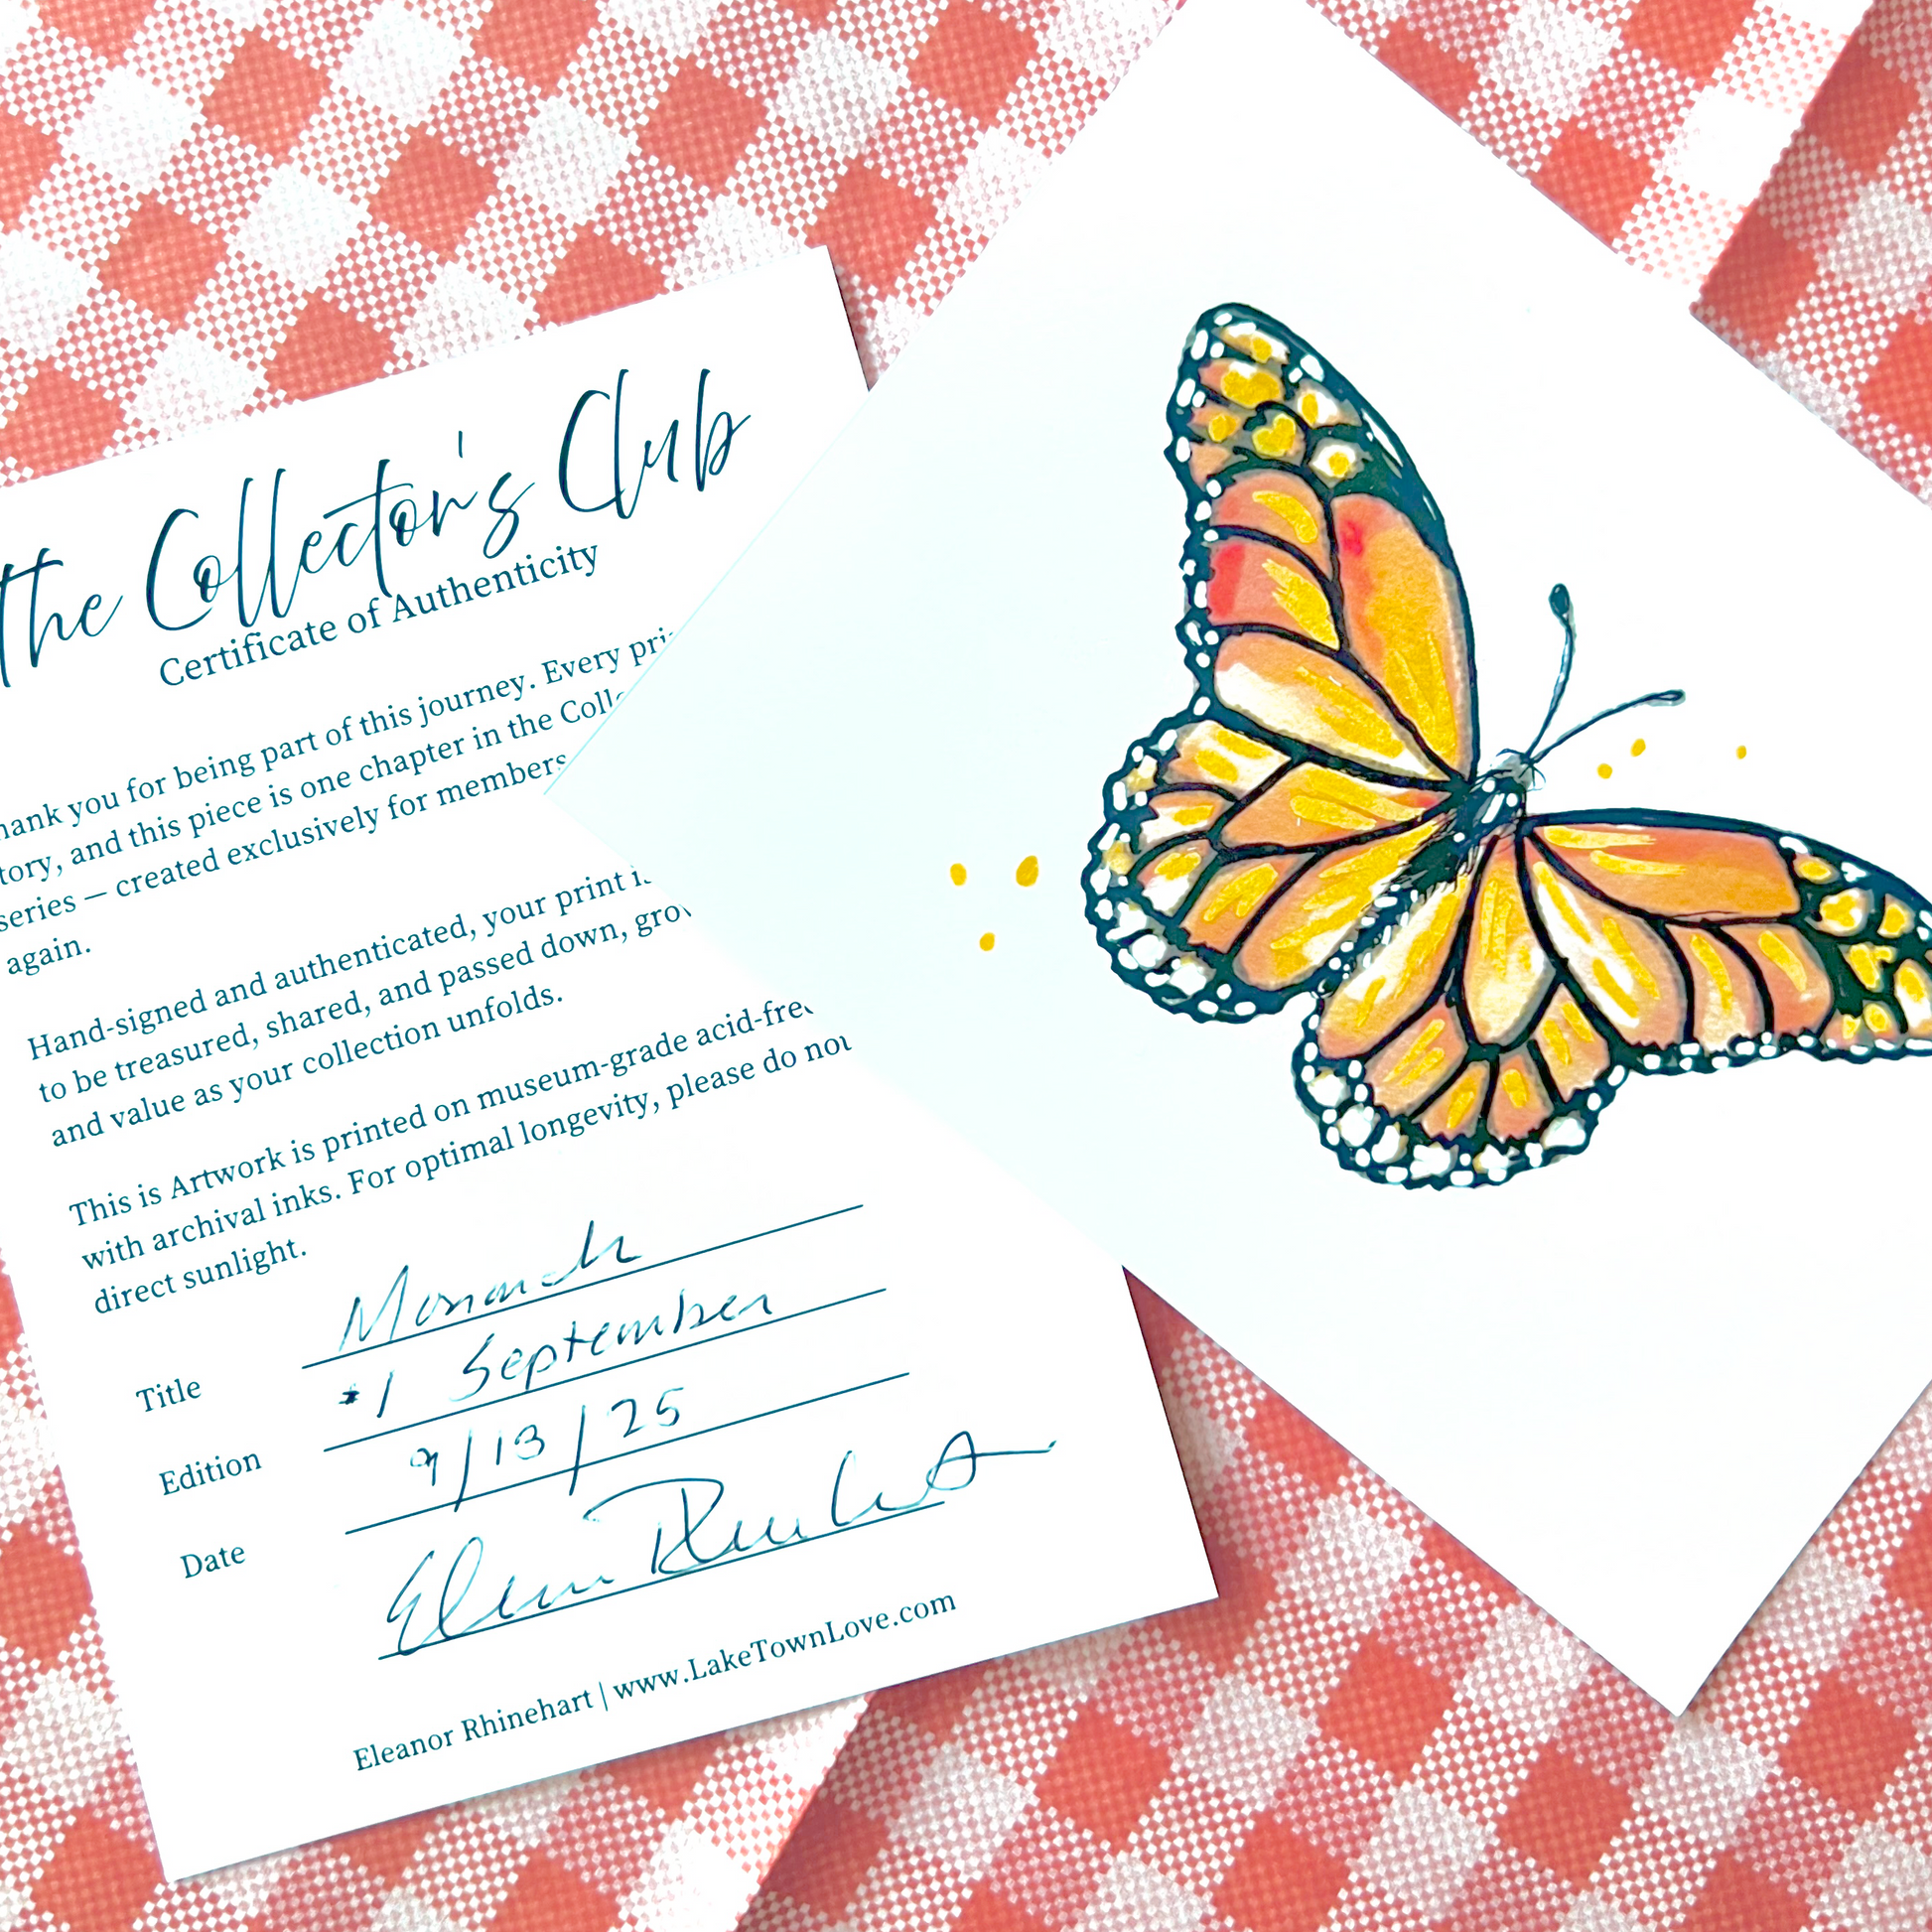 the Collector's Club
Certificate of Authenticity
hank you for being part of this journey. Every pri
tory, and this piece is one chapter in the Coll
series — created exclusively for members
again.
Hand-signed and authenticated, your print i
to be treasured, shared, and passed down, gro
and value as your collection unfolds.
This is Artwork is printed on museum-grade acid-free
with archival inks. For optimal longevity, please do not
direct sunlight.
Title Monarch
Edition #1 September
Date 9/13/25
Eleanor Rhinehart
Eleanor Rhinehart | www.LakeTownLove.com